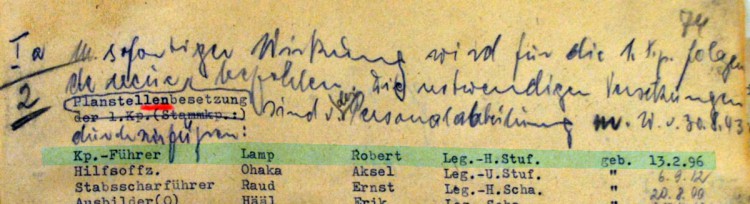 74
Ia m. sofortiger Wirkung wird für die 1. Kp. folgen
de neue befohlen. Die notwendigen Versetzungen
2
Planstellenbesetzung sind v. Personalabteilung m. W. v. 30.8.43
der 1.Kp.(Stammkp.:)
durchzuführen:
Kp.-Führer Lamp Robert Leg.-H.Stuf. geb. 13.2.96
Hilfsoffz. Ohaka Aksel Leg.-U.Stuf. " 6.9.12
Stabsscharführer Raud Ernst Leg.-H.Scha. " 20.8.00
Ausbilder(O) Hääl Erik